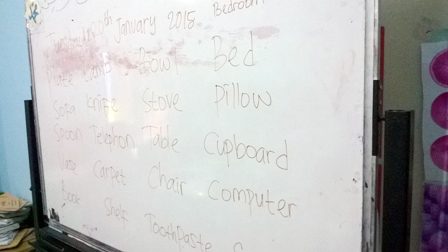 January 2018 Bedroom
Bowl Bed
Sofa Knife Stove Pillow
Spoon Telephon Table Cupboard
Carpet Chair Computer
Book Shelf Toothpaste